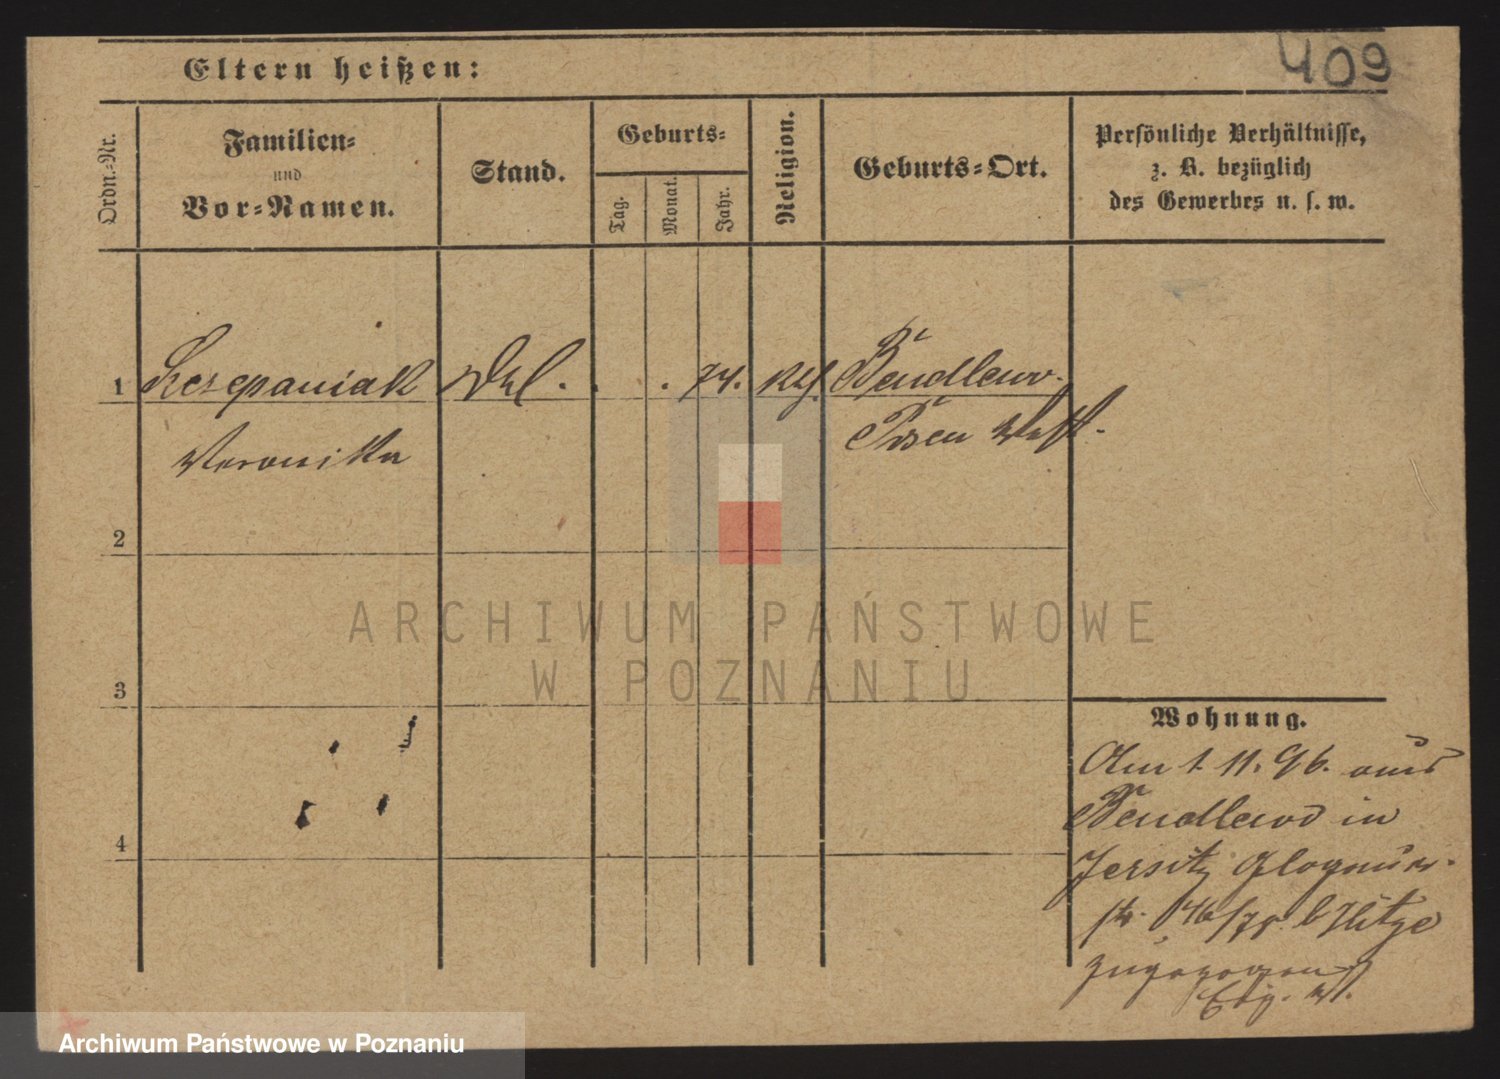 409
Eltern heißen:
Ordn.-Nr.
Familien-
und
Vor-Namen.
Stand.
Geburts-
Tag.
Monat.
Jahr.
Religion.
Geburts-Ort.
Persönliche Verhältnisse,
z. B. bezüglich
des Gewerbes u. s. w.
1 Szczepaniak . . 74. Bendlewo.
Veronika Posen West.
2
3
4
Wohnung.
Am 1. 11. 96. aus
Bendlewo in
Jersitz Glogauer-
str. b Hitze
zugezogen
ARCHIWUM PAŃSTWOWE
W POZNANIU
Archiwum Państwowe w Poznaniu